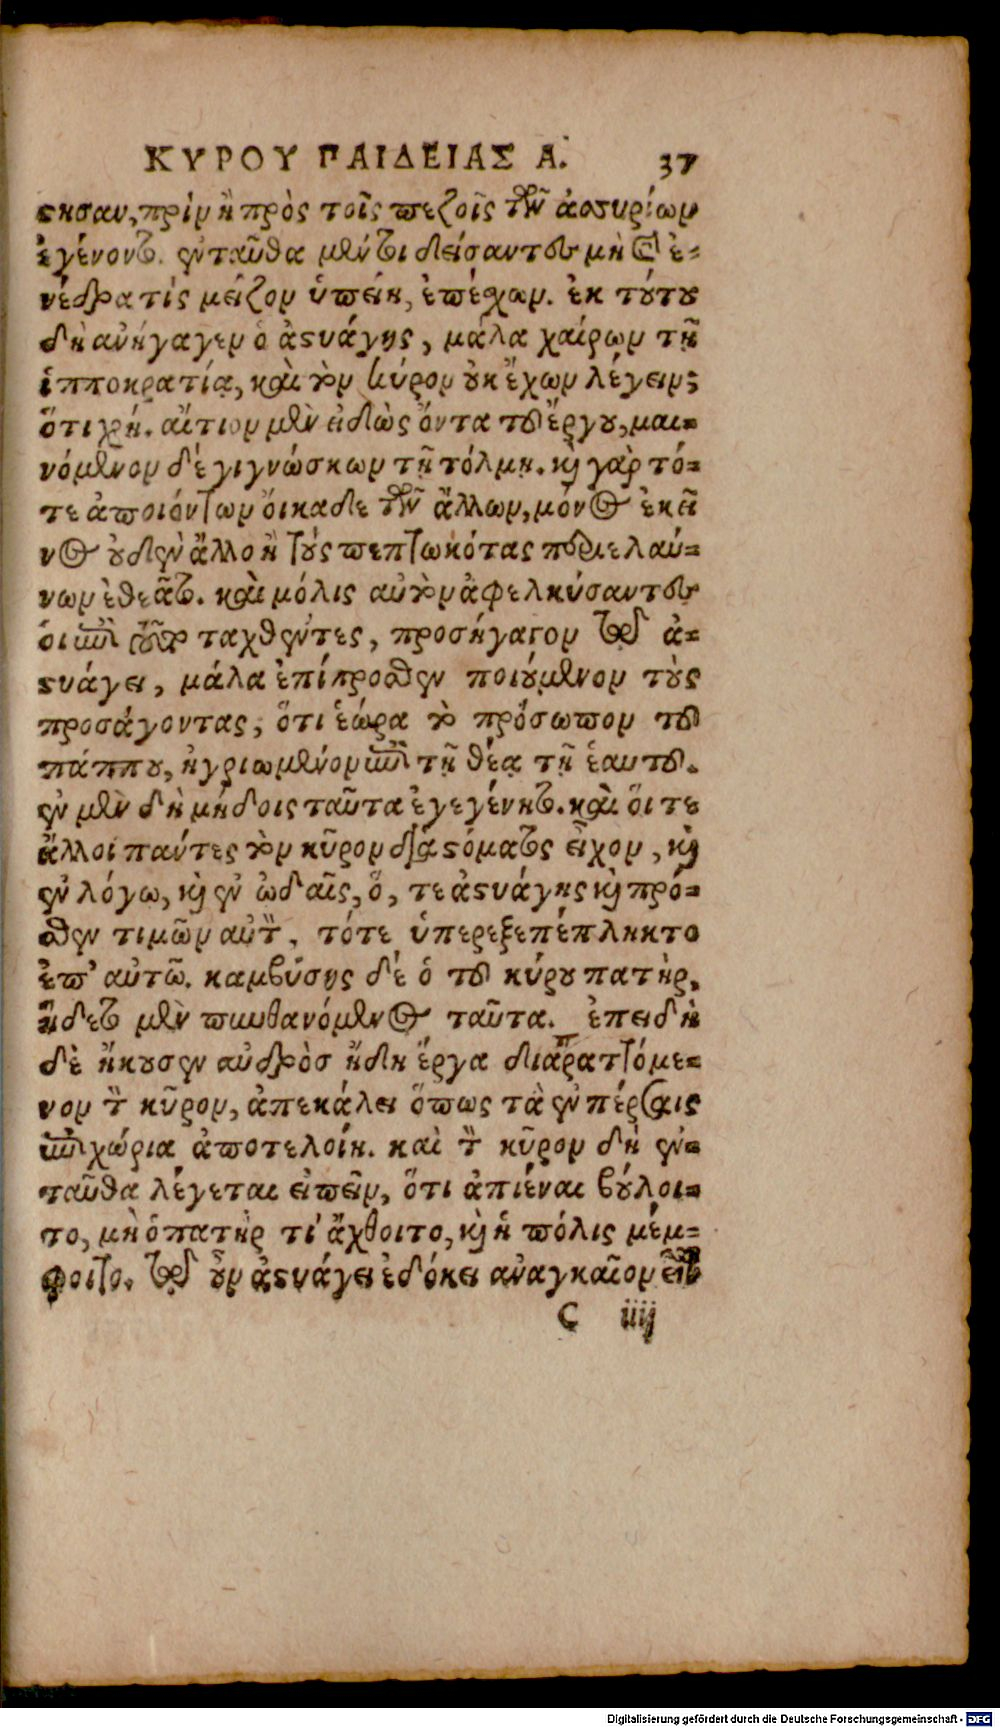 ΚΥΡΟΥ ΠΑΙΔΕΙΑΣ Α. 37
στησαν, πρὶν ἢ πρὸς τοῖς πεζοῖς τῶν ἀσσυρίων
ἐγένοντο. ἐνταῦθα μέντοι δείσαντες μὴ καὶ ἐ-
νέδρα τὶς μείζων ὑπείη, ἐπέσχον. ἐκ τούτου
δὴ ἀνήγαγεν ὁ ἀστυάγης, μάλα χαίρων τῇ
ἱπποκρατίᾳ, καὶ τὸν κύρον οὐκ ἔχων λέγειν;
ὅτι χρή. αἴτιον μὲν εἰδὼς ὄντα τοῦ ἔργου, μαι-
νόμενον δὲ γιγνώσκων τῇ τόλμῃ. καὶ γὰρ τό-
τε ἀπιόντων οἴκαδε τῶν ἄλλων, μόνος ἐκεῖ
νος οὐδὲν ἄλλο ἢ τοὺς πεπτωκότας περιελαύ-
νων ἐθεᾶτο. καὶ μόλις αὐτὸν ἀφελκύσαντες
οἱ ἐπὶ τοῦτο ταχθέντες, προσήγαγον τῷ ἀ-
στυάγει, μάλα ἐπίπροσθεν ποιούμενον τοὺς
προσάγοντας, ὅτι ἑώρα τὸ πρόσωπον τοῦ
πάππου, ἠγριωμένον ἐπὶ τῇ θέᾳ τῇ ἑαυτοῦ.
ἐν μὲν δὴ μήδοις ταῦτα ἐγεγένητο. καὶ οἵ τε
ἄλλοι πάντες τὸν κῦρον διὰ στόματος εἶχον, καὶ
ἐν λόγω, καὶ ἐν ὠδαῖς, ὅ, τε ἀστυάγης καὶ πρό-
σθεν τιμῶν αὐτὸν, τότε ὑπερεξεπέπληκτο
ἐπ' αὐτῶ. καμβύσης δὲ ὁ τοῦ κύρου πατὴρ,
ἥδετο μὲν πυνθανόμενος ταῦτα. ἐπειδὴ
δὲ ἤκουσεν ἀνδρὸς ἤδη ἔργα διαπραττόμε-
νον τὸν κῦρον, ἀπεκάλει ὅπως τὰ ἐν πέρσαις
ἐπιχώρια ἀποτελοίη. καὶ τὸν κῦρον δὴ ἐν-
ταῦθα λέγεται εἰπεῖν, ὅτι ἀπιέναι βούλοι-
το, μὴ ὁ πατὴρ τὶ ἄχθοιτο, καὶ ἡ πόλις μέμ-
φοιτο. τῷ οὖν ἀστυάγει ἐδόκει ἀναγκαῖον εἶναι
C iiij
Digitalisierung gefördert durch die Deutsche Forschungsgemeinschaft - DFG